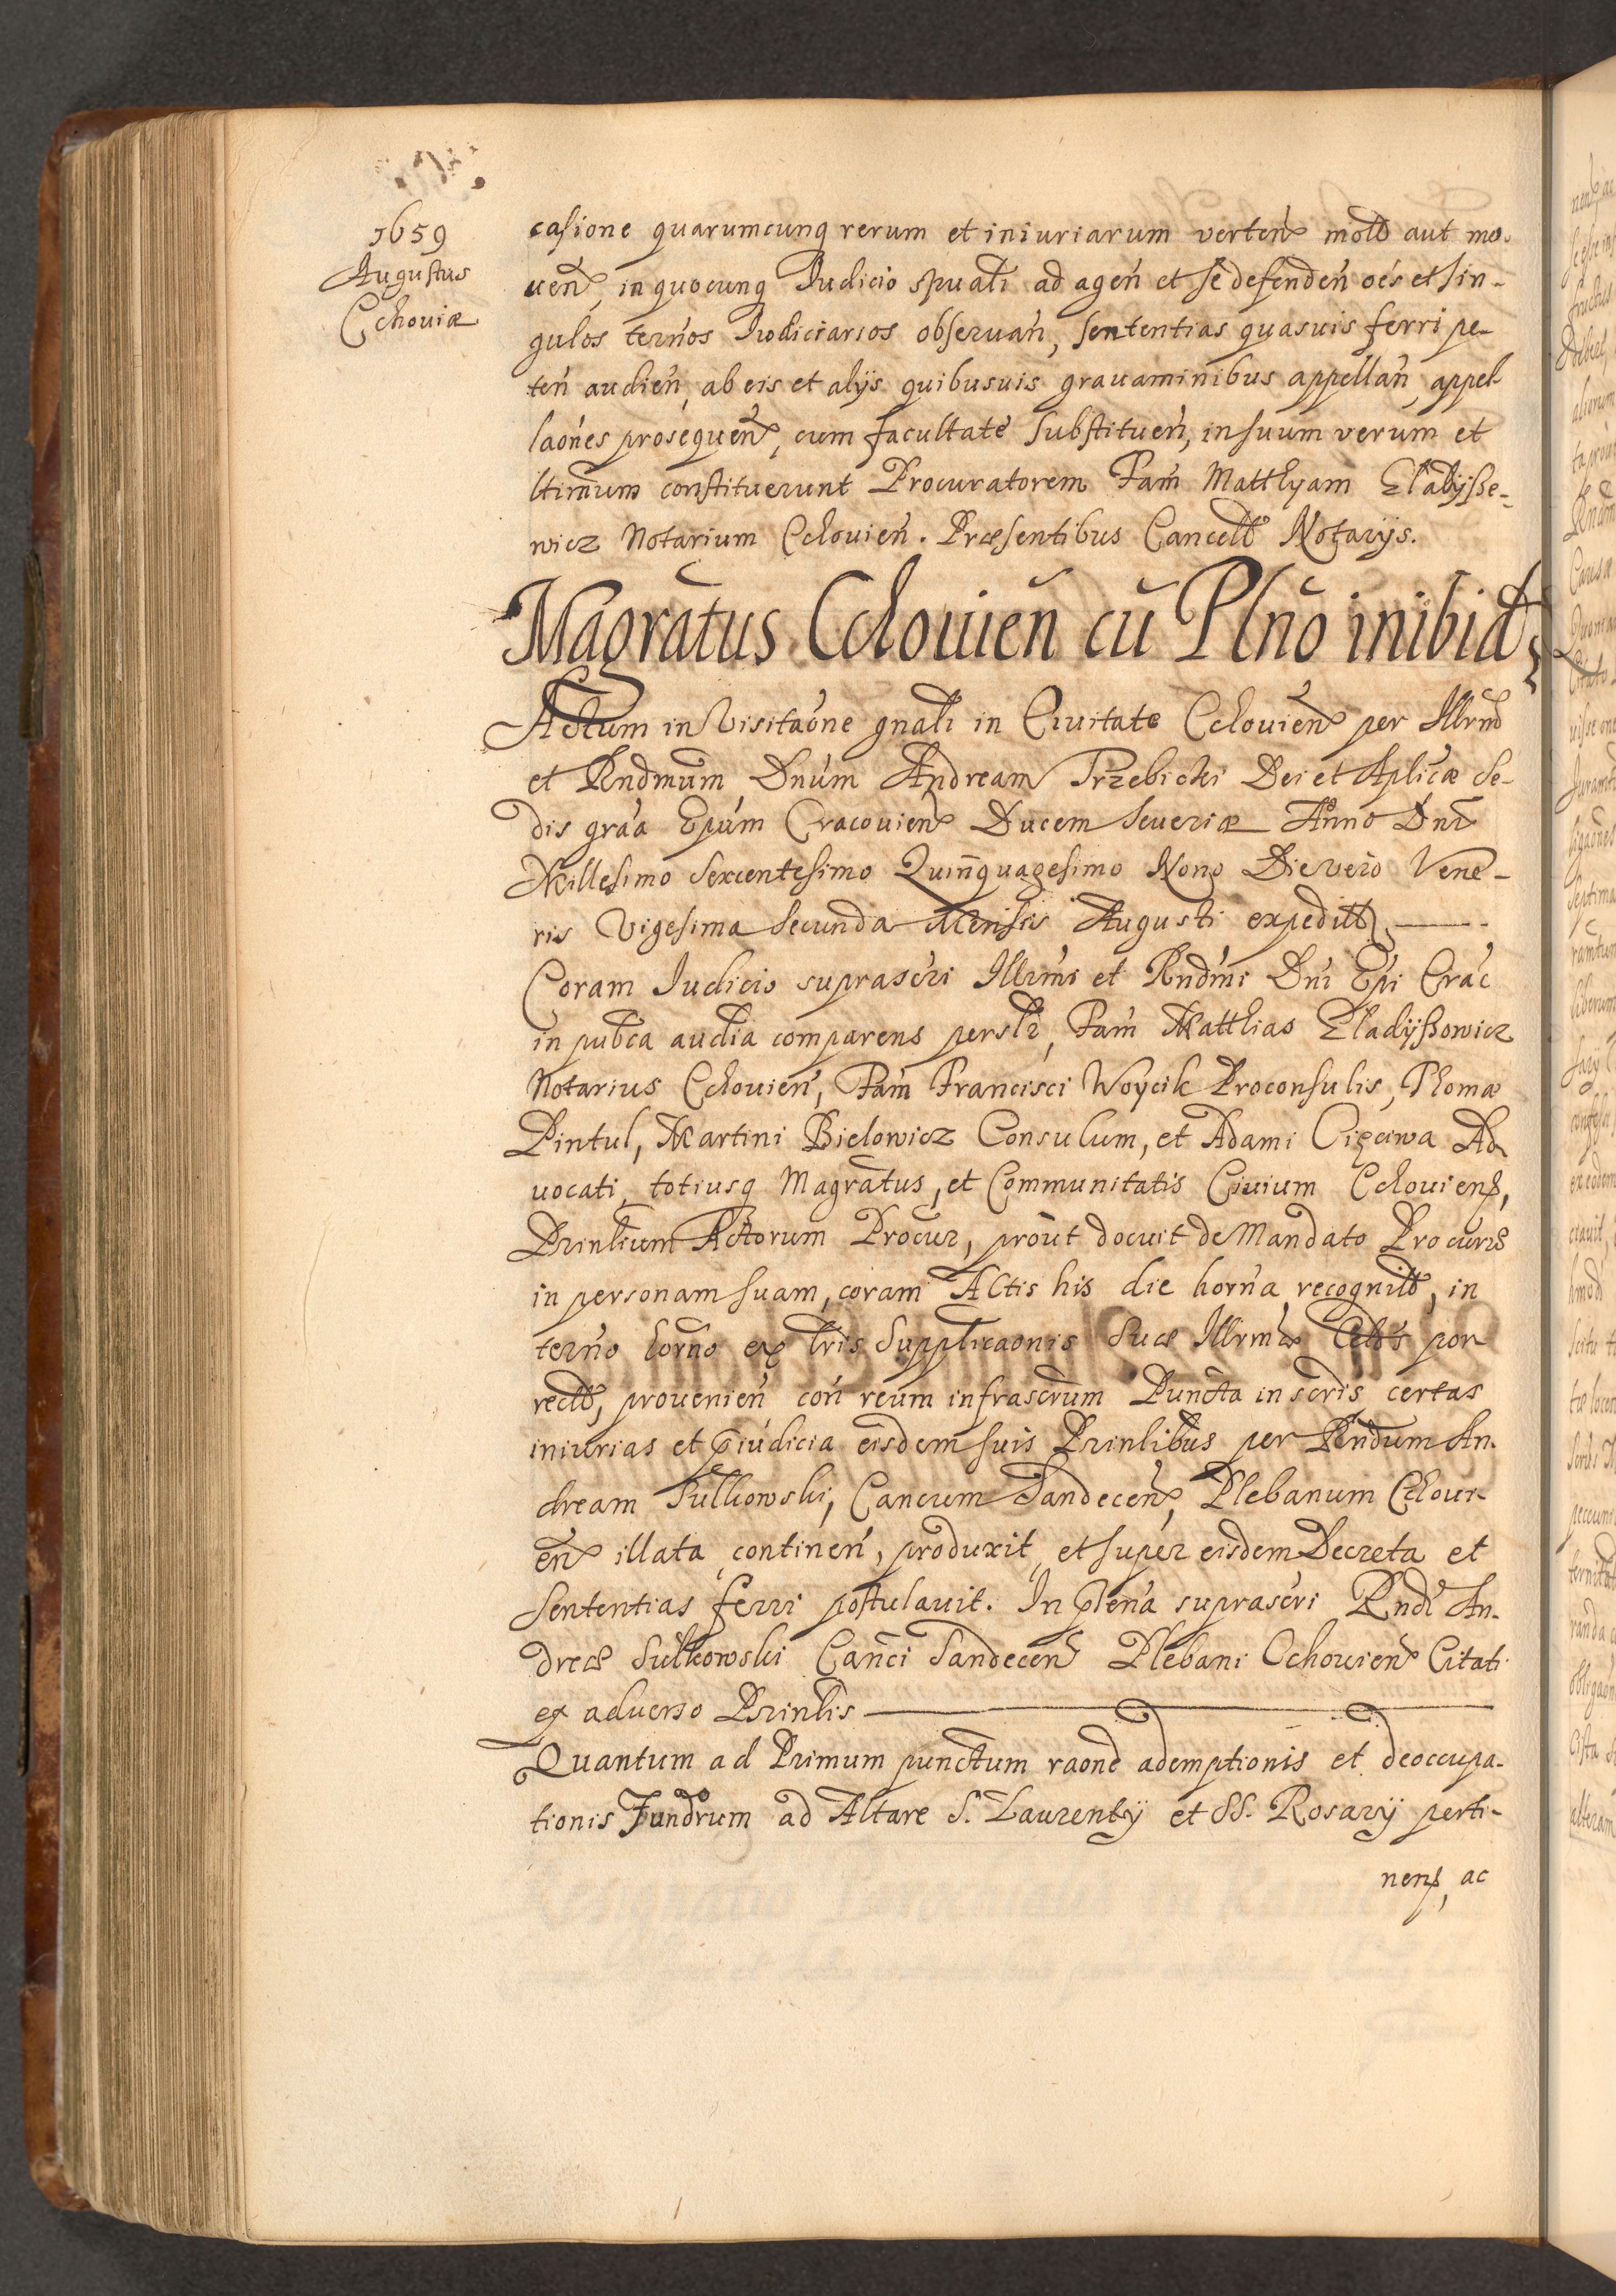 1659
Augustus
Cchouiæ
casione quarumcunq rerum et iniuriarum verten motô aut mo-
uen, in quocunq Iudicio spuali ad agen et se defenden oes et sin-
gulos termos Iudiciarios obseruan, sententias quasuis ferri pe-
ten audien, ab eis et alijs quibusuis grauaminibus appellan, appel-
laones prosequen, cum facultate substituen, in suum verum et
ltimum constituerunt Procuratorem Fam Matthyam Eladyße-
wicz Notarium Cchouien. Præsentibus Cancell Notarijs.
Magratus Cchouien cu Plno inibid
Actum in Visitaone gnali in Ciuitate Cchouien per Illrm
et Rndmum Dnum Andream Trzebicki Dei et Aplicæ Se-
dis graa Epum Cracouien Ducem Seueriæ Anno Dni
Millesimo Sexcentesimo Quinquagesimo Nono Die vero Vene-
ris Vigesima Secunda Mensis Augusti expedit
Coram Iudicio suprascri Illrmi et Rndmi Dni Epi Crac
in pubca audia comparens persl, Fam Matthias Eladyßowicz
Notarius Cchouien, Fam Francisci Woycik Proconsulis, Thomæ
Pintul, Martini Bielowicz Consulum, et Adami Cięciwa Ad
uocati, totiusq Magratus, et Communitatis Ciuium Cchouiens,
Prinlium Actorum Procur, prout docuit de Mandato Procuris
in personam suam, coram Actis his die horna recognit, in
termo horno ex lris Supplicaonis Suæ Illrmæ Celnis por
rect, prouenien con reum infrascrum Puncta in scris certas
iniurias et piudicia eisdem suis Prinlibus per Rndum An-
dream Sulkowski, Cancum Sandecen, Plebanum Cchoui-
en illata continen, produxit, et super eisdem Decreta et
Sententias ferri postulauit. In plena suprascri Rndi An-
dreæ Sulkowski Canci Sandecen Plebani Cchouien Citati
ex aduerso Prinlis
Quantum ad Primum punctum raone ademptionis et deoccupa-
tionis Fundorum ad Altare S. Laurentij et SS. Rosarij perti-
nens, ac